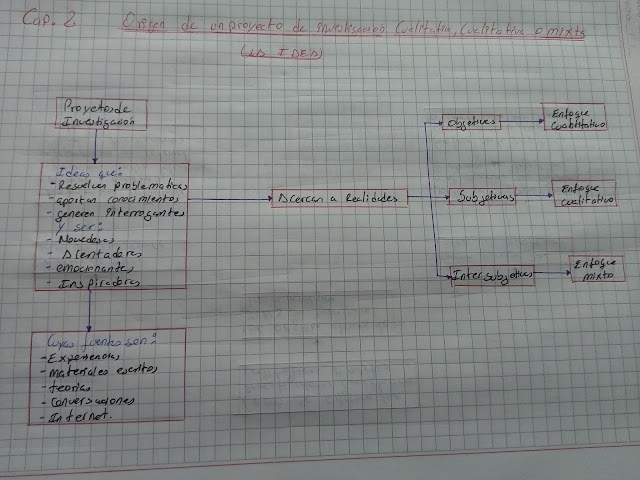 Cap. 2
Origen de un proyecto de investigacion Cualitativa, Cualitativa o mixto
(LA IDEA)
Proyectos de
Investigación
Ideas que:
- Resuelvan problematicas
- aportan conocimientos
- generen interrogantes
y ser:
- Novedosas
- Alentadores
- emocionantes
- Inspiradores
Cuyas fuentes son:
- Experiencias
- materiales escritos
- teorias
- Conversaciones
- Internet.
Acercan a Realidades
Objetivas
Enfoque
Cuantitativo
Subjetivas
Enfoque
Cualitativo
Intersubjetivas
Enfoque
mixto